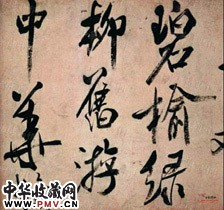 碧榆綠
柳舊游
中華
中华收藏网
WWW.PMV.CN